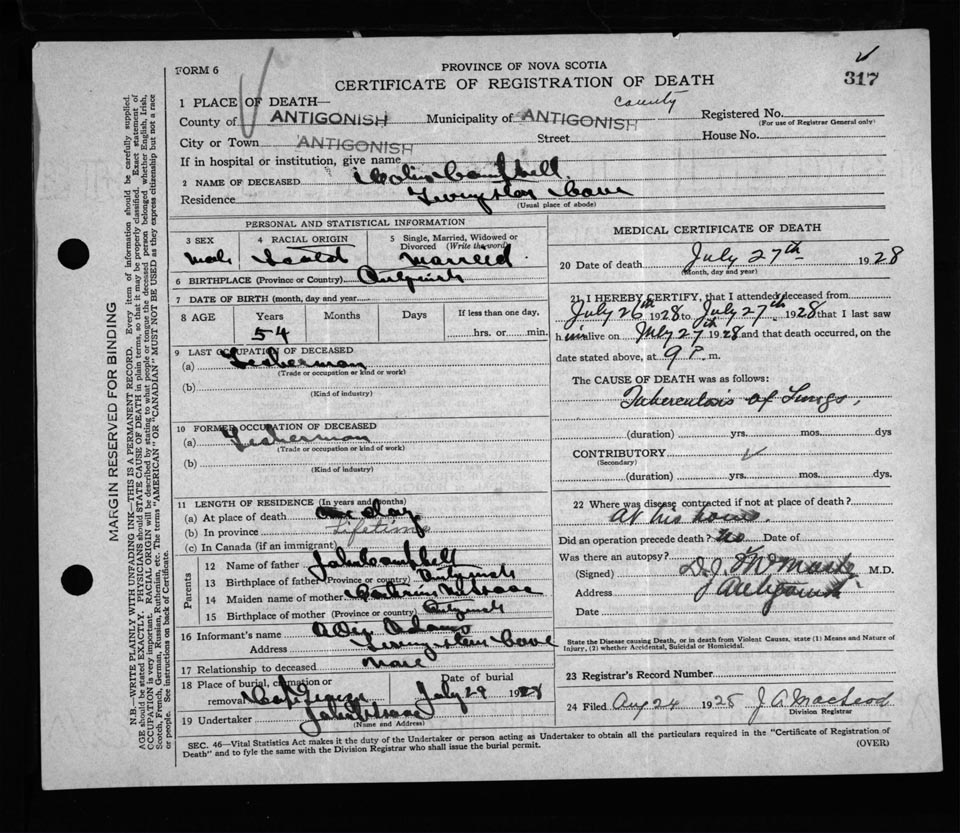 FORM 6
PROVINCE OF NOVA SCOTIA
CERTIFICATE OF REGISTRATION OF DEATH
317
1 PLACE OF DEATH—
County of ANTIGONISH Municipality of ANTIGONISH County Registered No.
(For use of Registrar General only)
City or Town ANTIGONISH Street House No.
If in hospital or institution, give name
2 NAME OF DECEASED Colin Campbell
Residence Livingston Cove
(Usual place of abode)
PERSONAL AND STATISTICAL INFORMATION
3 SEX 4 RACIAL ORIGIN 5 Single, Married, Widowed or Divorced (Write the word)
Male Married
6 BIRTHPLACE (Province or Country) Antigonish
7 DATE OF BIRTH (month, day and year
8 AGE Years Months Days If less than one day,
54 hrs. or min.
9 LAST OCCUPATION OF DECEASED
(a) Fisherman
(Trade or occupation or kind or work)
(b)
(Kind of industry)
10 FORMER OCCUPATION OF DECEASED
(a) Fisherman
(Trade or occupation or kind or work)
(b)
(Kind of industry)
11 LENGTH OF RESIDENCE (In years and months)
(a) At place of death one day
(b) In province Lifetime
(c) In Canada (if an immigrant)
Parents
12 Name of father John Campbell
13 Birthplace of father (Province or country) Antigonish
14 Maiden name of mother
15 Birthplace of mother (Province or country) Antigonish
16 Informant's name Adams
Address Livingston Cove
17 Relationship to deceased None
18 Place of burial, cremation or removal Cape George Date of burial July 29 1928
19 Undertaker John
(Name and Address)
MEDICAL CERTIFICATE OF DEATH
20 Date of death July 27th 1928
(Month, day and year)
21 I HEREBY CERTIFY, that I attended deceased from
July 26th 1928 to July 27th 1928 that I last saw
him alive on July 27th 1928 and that death occurred, on the
date stated above, at 9 P. m.
The CAUSE OF DEATH was as follows:
Tuberculosis of Lungs.
(duration) yrs. mos. dys
CONTRIBUTORY
(Secondary)
(duration) yrs. mos. dys.
22 Where was disease contracted if not at place of death?
At his home.
Did an operation precede death? No Date of
Was there an autopsy?
(Signed) D.J. M.D.
Address Antigonish
Date
State the Disease causing Death, or in death from Violent Causes, state (1) Means and Nature of Injury, (2) whether Accidental, Suicidal or Homicidal.
23 Registrar's Record Number
24 Filed Aug 24 1928 J A MacLeod
Division Registrar
SEC. 46—Vital Statistics Act makes it the duty of the Undertaker or person acting as Undertaker to obtain all the particulars required in the "Certificate of Registration of
Death" and to fyle the same with the Division Registrar who shall issue the burial permit.
(OVER)
MARGIN RESERVED FOR BINDING
N.B.—WRITE PLAINLY WITH UNFADING INK—THIS IS A PERMANENT RECORD. Every item of information should be carefully supplied.
AGE should be stated EXACTLY. PHYSICIANS should STATE CAUSE OF DEATH in plain terms, so that it may be properly classified. Exact statement of
OCCUPATION is very important. RACIAL ORIGIN will be described by stating to what people or tongue the deceased person belonged whether English, Irish,
Scotch, French, German, Russian, Ruthenian, etc. The terms "AMERICAN" OR "CANADIAN" MUST NOT BE USED as they express citizenship but not a race
or people. See instructions on back of Certificate.